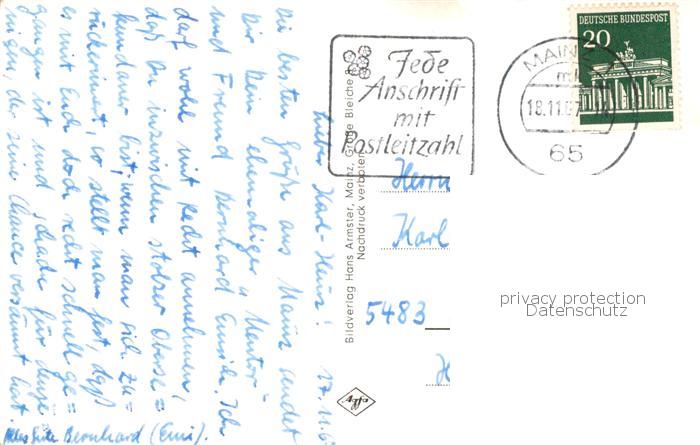 17.11.6
Lieber Karl-Heinz!
Die besten Grüße aus Mainz sendet
Dir Dein ehemaliger „Mentor"
und Freund Bernhard Emrich. Ich
darf wohl mit Recht annehmen,
daß Du inzwischen stolzer Oberse=
kundaner bist; wenn man sich zu=
rückerinnert, so stellt man fest, daß
es mit Euch doch recht schnell ge=
gangen ist und schade für denje=
nigen, der seine Chance versäumt hat
Alles Gute Bernhard (Emi).
Bildverlag Hans Armster, Mainz, Große Bleiche
Nachdruck verboten
Agfa
Jede
Anschrift
mit
Postleitzahl
MAINZ
18.11.67
65
DEUTSCHE BUNDESPOST
20
Herrn
Karl
5483
privacy protection
Datenschutz